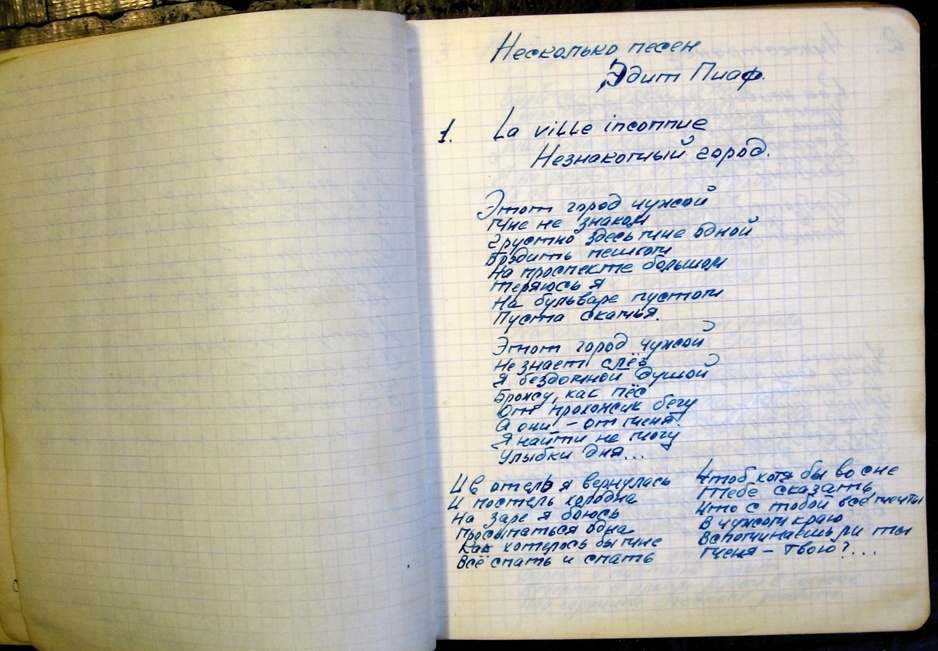 Несколько песен
Эдит Пиаф.
1. La ville inconnue
Незнакомый город.
Этот город чужой
Мне не знаком
Грустно здесь мне одной
Бродить пешком
На проспекте большом
Теряюсь я
На бульваре пустом
Пуста скамья.
Этот город чужой
Не знает слёз
Я бездомной душой
Брожу, как пёс
От прохожих бегу
А они – от меня!
Я найти не могу
Улыбки дня...
И в отель я вернулась
И постель холодна
На заре я боюсь
Просыпаться одна
Как хотелось бы мне
Всё спать и спать
Чтоб хотя бы во сне
Тебе сказать
Что с тобой все мечты
В чужом краю
Вспоминаешь ли ты
Меня – твою?...